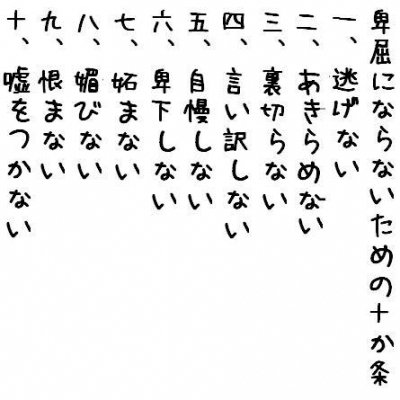 卑屈にならないための十か条
一、逃げない
二、あきらめない
三、裏切らない
四、言い訳しない
五、自慢しない
六、卑下しない
七、妬まない
八、媚びない
九、恨まない
十、嘘をつかない